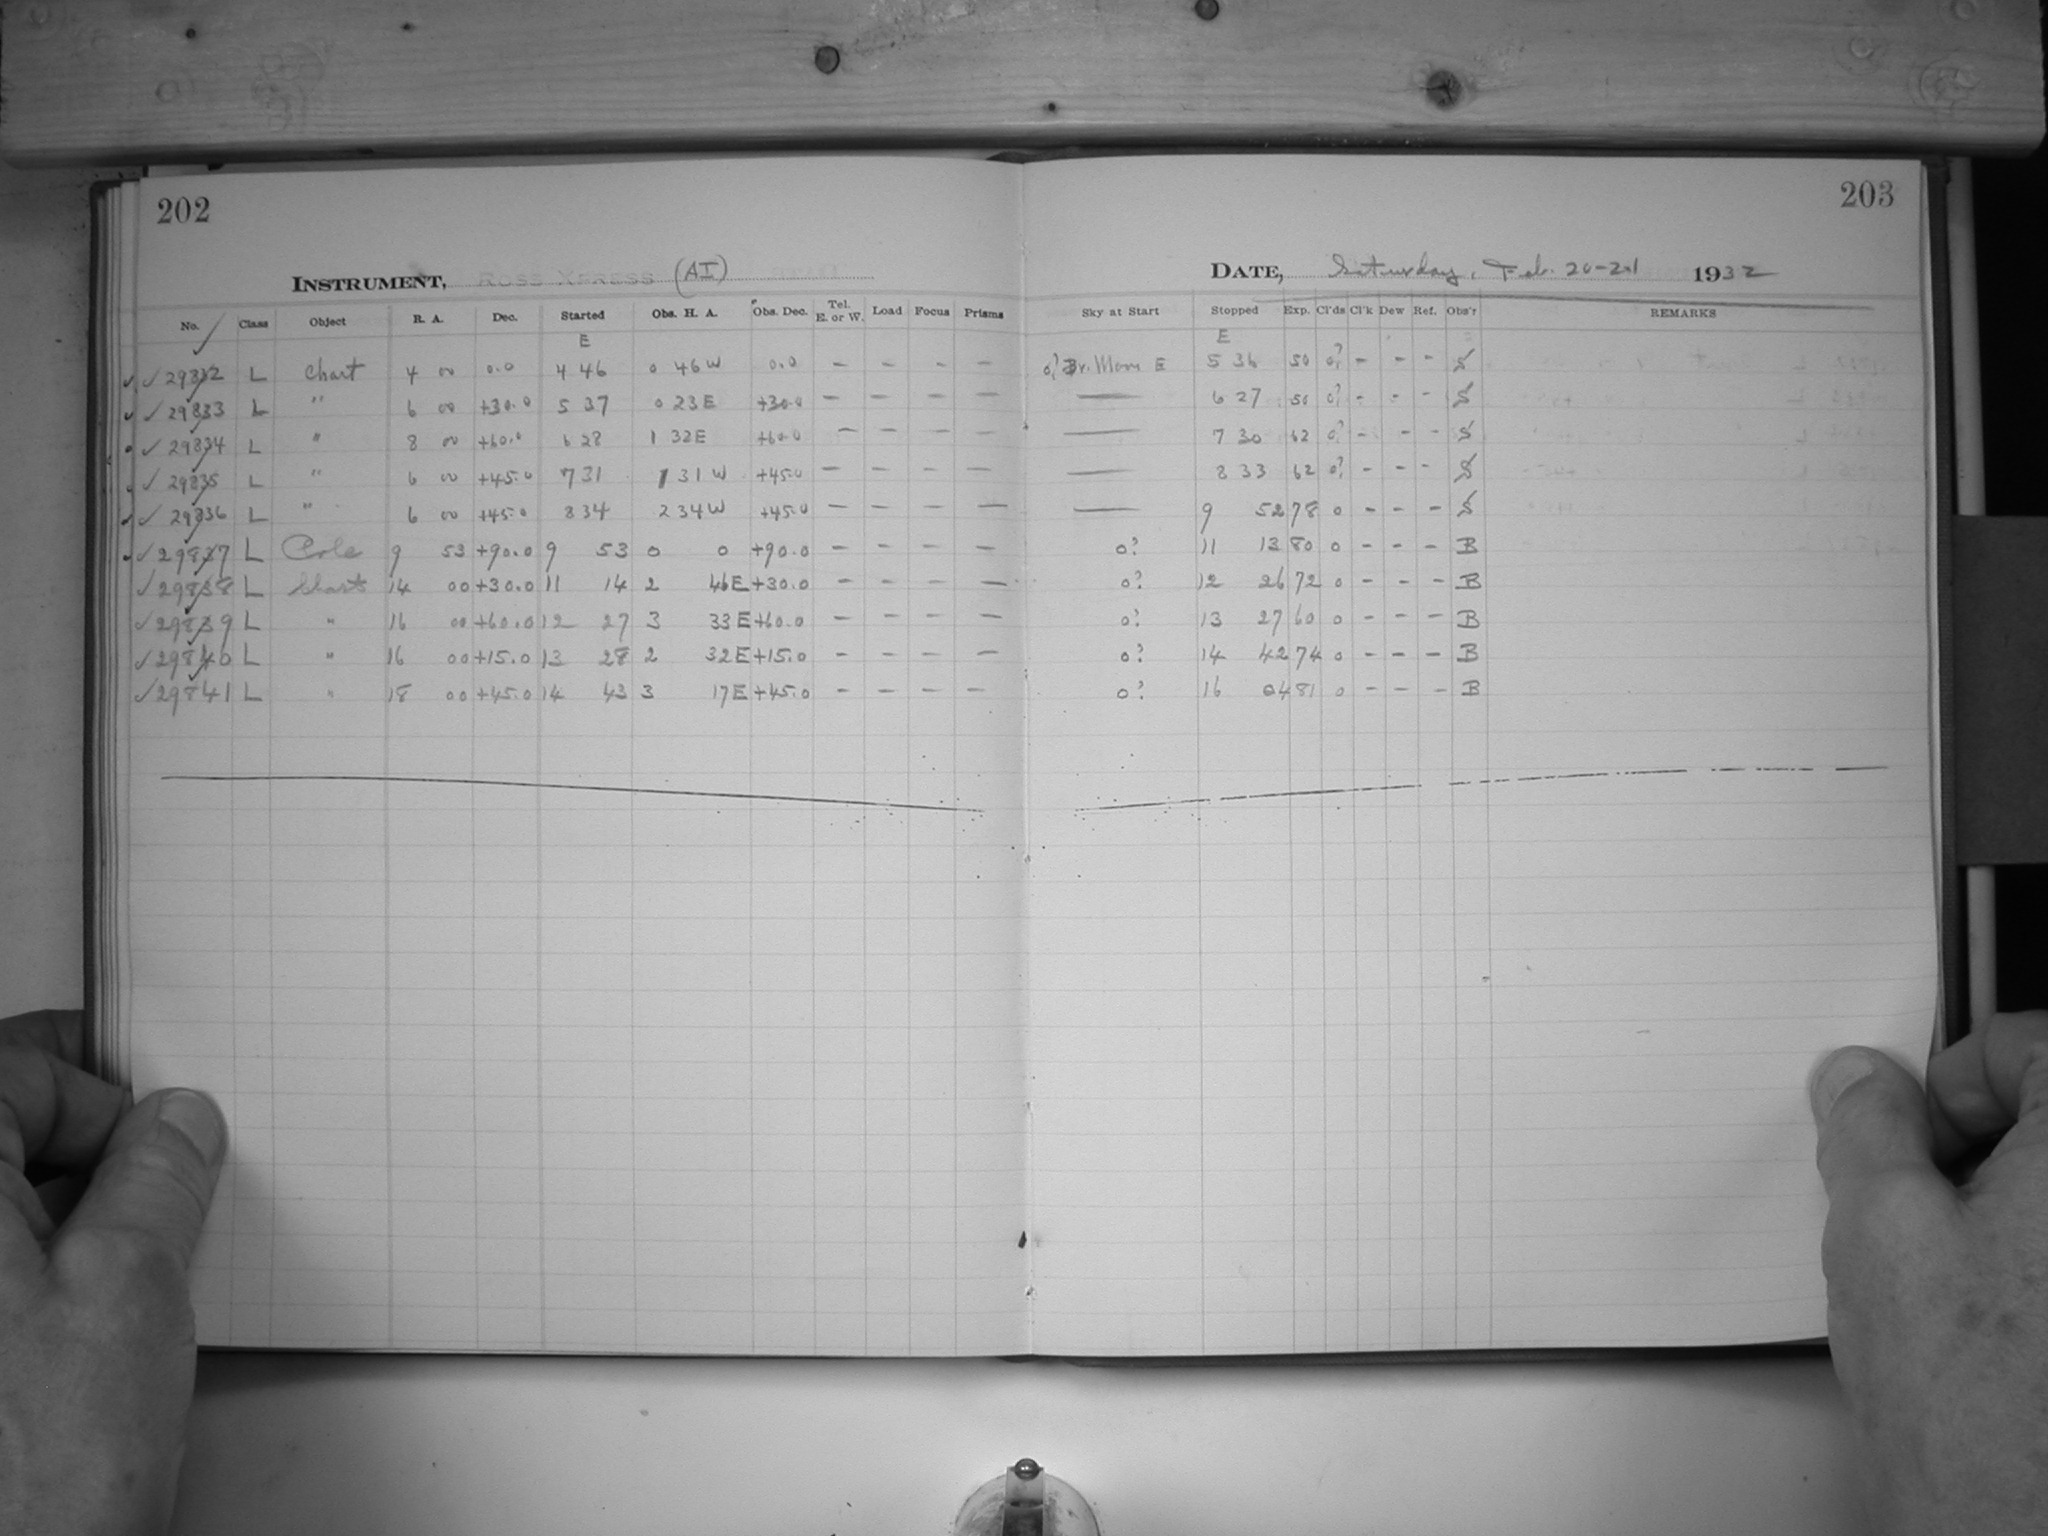 202
203
INSTRUMENT, ROSS XPRESS (AI)
DATE, Saturday, Feb. 20-21 1932
No. Class Object R. A. Dec. Started Obs. H. A. Obs. Dec. Tel. E. or W. Load Focus Prisms Sky at Start Stopped Exp. Cl'ds Cl'k Dew Ref. Obs'r REMARKS
E E
✓ ✓ 29832 L Chart 4 00 0.0 4 46 0 46 W 0.0 - - - - 0? Br. Moon E 5 36 50 0? - - - S
✓ ✓ 29833 L " 6 00 +30.0 5 37 0 23 E +30.0 - - - - — 6 27 50 0? - - - S
✓ ✓ 29834 L " 8 00 +60.0 6 28 1 32 E +60.0 - - - - — 7 30 62 0? - - - S
✓ ✓ 29835 L " 6 00 +45.0 7 31 1 31 W +45.0 - - - - — 8 33 62 0? - - - S
✓ ✓ 29836 L " 6 00 +45.0 8 34 2 34 W +45.0 - - - - — 9 52 78 0 - - - S
✓ ✓ 29837 L Pole 9 53 +90.0 9 53 0 0 +90.0 - - - - 0? 11 13 80 0 - - - B
✓ 29838 L Chart 14 00 +30.0 11 14 2 46 E +30.0 - - - - 0? 12 26 72 0 - - - B
✓ 29839 L " 16 00 +60.0 12 27 3 33 E +60.0 - - - - 0? 13 27 60 0 - - - B
✓ 29840 L " 16 00 +15.0 13 28 2 32 E +15.0 - - - - 0? 14 42 74 0 - - - B
✓ 29841 L " 18 00 +45.0 14 43 3 17 E +45.0 - - - - 0? 16 04 81 0 - - - B